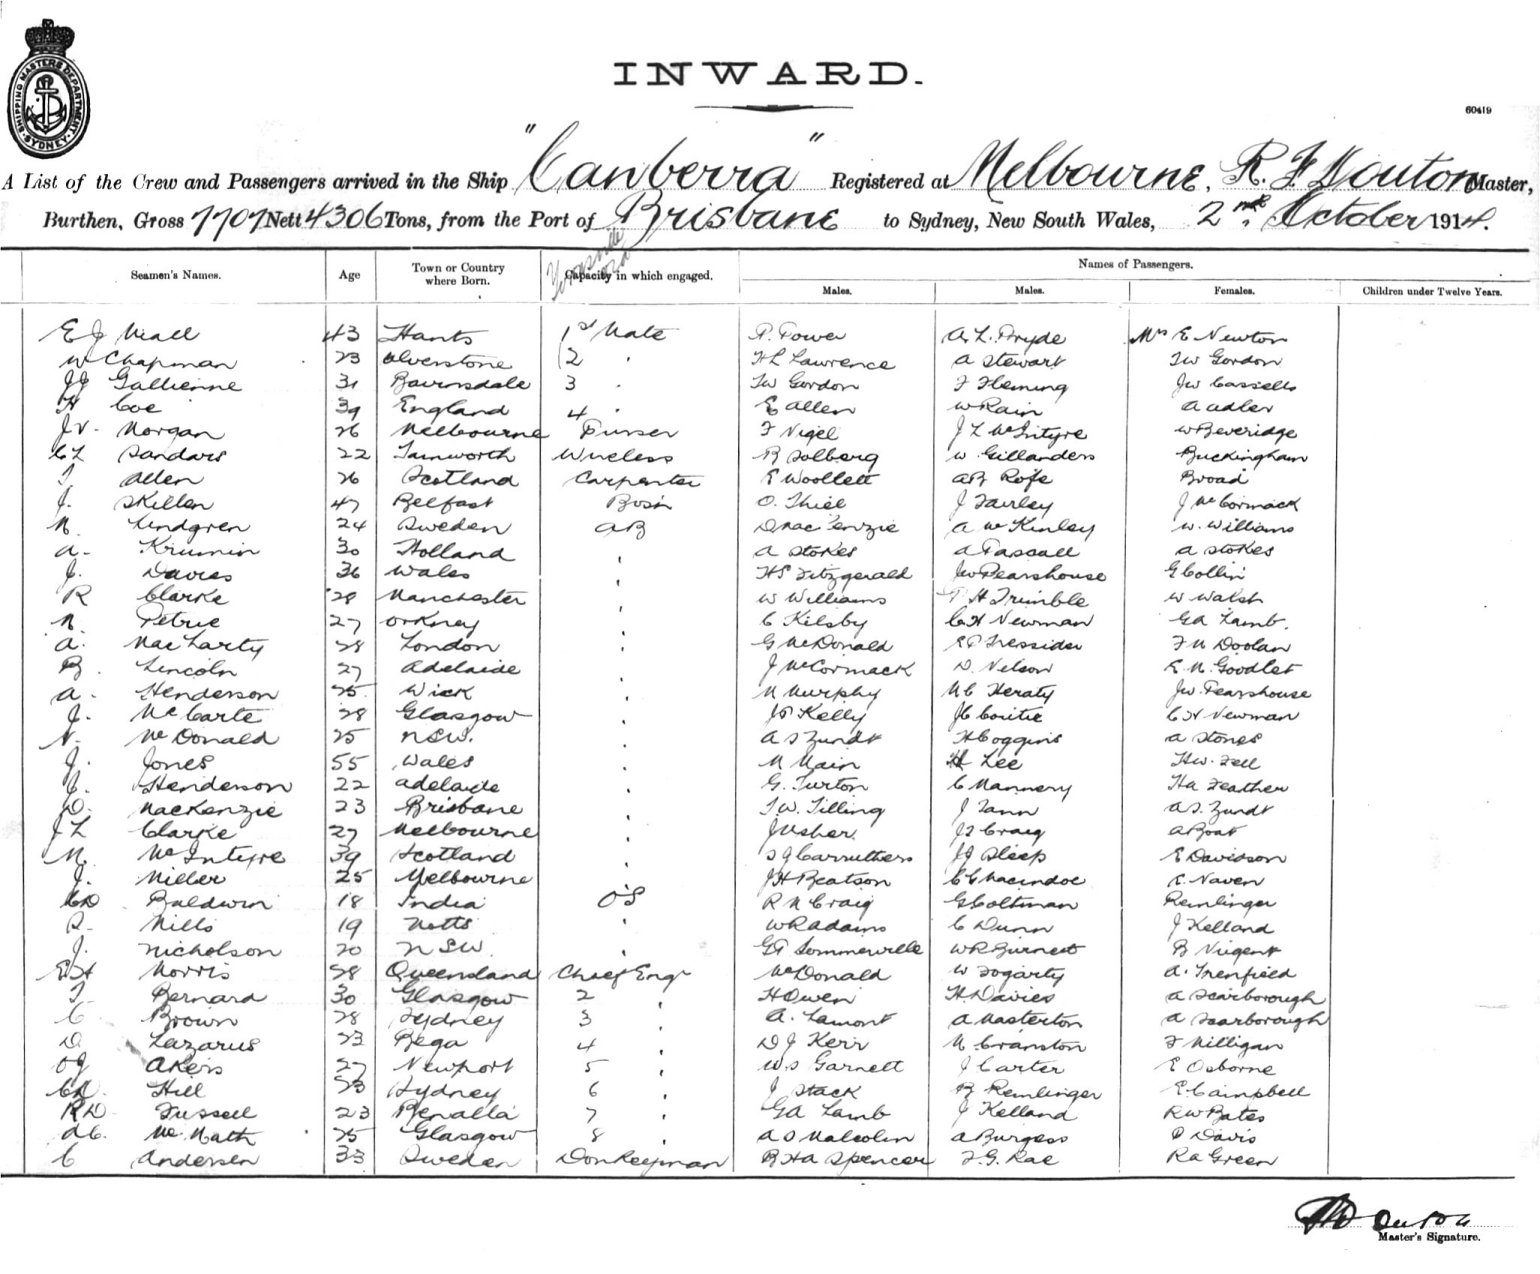 SHIPPING MASTERS DEPARTMENT
SYDNEY
INWARD.
60419
A List of the Crew and Passengers arrived in the Ship "Canberra" Registered at Melbourne, R. F. Douton Master,
Burthen, Gross 7707 Nett 4306 Tons, from the Port of Brisbane to Sydney, New South Wales, 2nd October 1914.
Seamen's Names. Age Town or Country where Born. Capacity in which engaged. Names of Passengers.
Males. Males. Females. Children under Twelve Years.
E J Niall 43 Hants 1st Mate P. Power A. L. Pryde Mrs E Newton
W Chapman 23 Ulverstone 2 " H L Lawrence A Stewart T W Gordon
J J Gallienne 31 Bairnsdale 3 " T W Gordon F Fleming J W Cassells
H Coe 39 England 4 " E Allen W Rain A Adler
J V. Morgan 26 Melbourne Purser F Nigel J L McIntyre W Beveridge
C L Sandars 22 Tamworth Wireless B Solberg W Gillanders Buckingham
T Allen 26 Scotland Carpenter E Woollett A B Rofe Broad
J. Skillen 47 Belfast Bos'n O. Thiel J Fairley J McCormack
N. Lindgren 24 Sweden AB D MacKenzie A McKinley W. Williams
A. Krumin 30 Holland " A Stokes A Pascall A Stokes
J. Davies 36 Wales " H S Fitzgerald J W Pearshouse G Collin
R Clarke 28 Manchester " W Williams P H Trimble W Walsh
N. Petrie 27 Orkney " C Kilsby C H Newman G A Lamb.
A. MacLarty 28 London " G McDonald Tressider F M Doolan
B. Lincoln 27 Adelaide " J McCormack D. Nelson E M Goodlet
A. Henderson 25 Wick " M Murphy M C Heraty J W. Pearshouse
J. McCarte 28 Glasgow " J P Kelly J C Coutie C H Newman
N. McDonald 25 NSW. " A S Zundt H Coggins A Stones
J. Jones 55 Wales " M Main H Lee H W. Fell
J. Henderson 22 Adelaide " G. Turton C Mannery H A Feather
D. MacKenzie 23 Brisbane " T. W. Tilling J Tann A S. Zundt
J L Clarke 27 Melbourne " J Usher. J S Craig A Boat
N. McIntyre 39 Scotland " S J Carruthers J J Sleep E Davidson
J. Miller 25 Melbourne " J H Beatson C C Macindoe E. Naven
C D Baldwin 18 India OS R N Craig G Coltman Remlinger
R. Mills 19 Notts " W R Adams C Dunn J Kelland
J. Nicholson 20 NSW " G A Sommerville W R Burnett B Nugent
E H Norris 58 Queensland Chief Engr McDonald W Fogarty A. Trenfield
T Bernard 30 Glasgow 2 " H Owen H Davies A Scarborough
C Brown 28 Sydney 3 " A. Lamont A Masterton A Scarborough
D. Lazarus 23 Bega 4 " D J Kerr M Cranston F Milligan
O J Akers 27 Newport 5 " W S Garnett J Carter E Osborne
C R. Hill 23 Sydney 6 " J Stack B Remlinger E Campbell
R D Fussell 23 Benalla 7 " G A Lamb J Kelland R W Bates
A C. McMath 25 Glasgow 8 " A S Malcolm A Burgess P Davis
C Andersen 33 Sweden Donkeyman B H A Spencer F. G. Rae R A Green
R F Douton
Master's Signature.